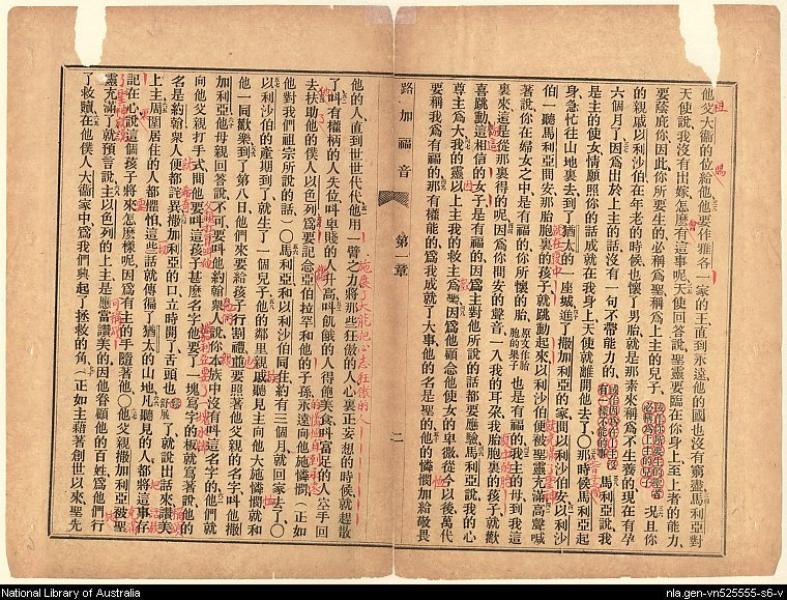 他父大衞的位給他他要作雅各一家的王直到永遠他的國也沒有窮盡馬利亞對
天使說我沒有出嫁怎麼有這事呢天使回答說聖靈要臨在你身上至上者的能力
要蔭庇你因此你所要生的必稱爲聖稱爲上主的兒子、況且你
的親戚以利沙伯在年老的時候也懷了男胎就是那素來稱爲不生養的現在有孕
六個月了因爲出於上主的話沒有一句不帶能力的、馬利亞說我
是主的使女情願照你的話成就在我身上天使就離開他去了〇那時候馬利亞起
身急忙往山地裏去到了猶太的一座城進了撒加利亞的家問以利沙伯安以利沙
伯一聽馬利亞問安那胎胞裏的孩子就跳動起來以利沙伯便被聖靈充滿高聲喊
著說你在婦女之中是有福的你所懷的胎原文作胎胞的果子也是有福的、我主的母到我這
裏來這是從那裏得的呢因爲你問安的聲音一入我的耳朶我胎胞裏的孩子就歡
喜跳動這相信的女子是有福的因爲主對他所說的話都要應驗馬利亞說我的心
尊主爲大我的靈以上主我的救主爲樂因爲他顧念他使女的卑微從今以後萬代
要稱我爲有福的、那有權能的、爲我成就了大事他的名是聖的他的憐憫加給敬畏
路加福音 第一章 二
他的人、直到世世代代他用臂之力將那些狂傲的人心裏正妄想的時候就趕散
了叫有權柄的人失位叫卑賤的人升高叫飢餓的人得飽美食叫富足的人空手回
去扶助他的僕人以色列爲要記念亞伯拉罕和他的子孫永遠向他施憐憫、(正如
他對我們祖宗所說的話、)〇馬利亞和以利沙伯同住約有三個月就回家去了〇
以利沙伯的產期到了就生了一個兒子他的鄰里親戚聽見主向他大施憐憫就和
他一同歡樂到了第八日他們來要給孩子行割禮並要照著他父親的名字叫他撒
加利亞他母親回答說不可要叫他約翰衆人說你本族中沒有叫這名字的他們就
向他父親打手式問他要叫這孩子甚麼名字他要了一塊寫字的板就寫著說他的
名是約翰衆人便都詫異撒加利亞的口立時開了舌頭也舒展了就說出話來讚美
上主周圍居住的人都懼怕這些話就傳徧了猶太的山地凡聽見的人都將這事存
記在心說這個孩子將來怎麼樣呢因爲有主的手隨著他〇他父親撒加利亞被聖
靈充滿了就預言說主以色列的上主是應當讚美的因他眷顧他的百姓爲他們行
了救贖在他僕人大衞家中爲我們興起了拯救的角、(正如主藉著創世以來聖先
National Library of Australia
nla.gen-vn525555-s6-v